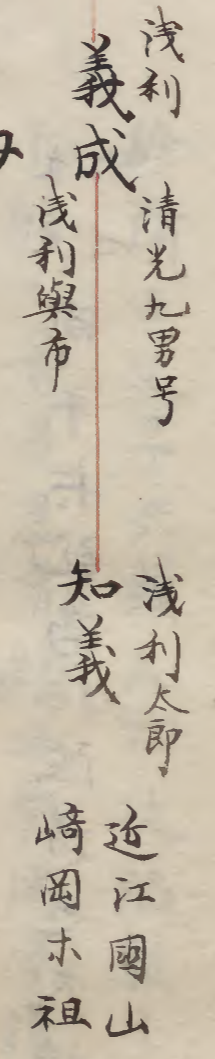 浅利
義成
清光九男号
浅利與市
浅利太郎
知義
近江國山
崎岡木祖